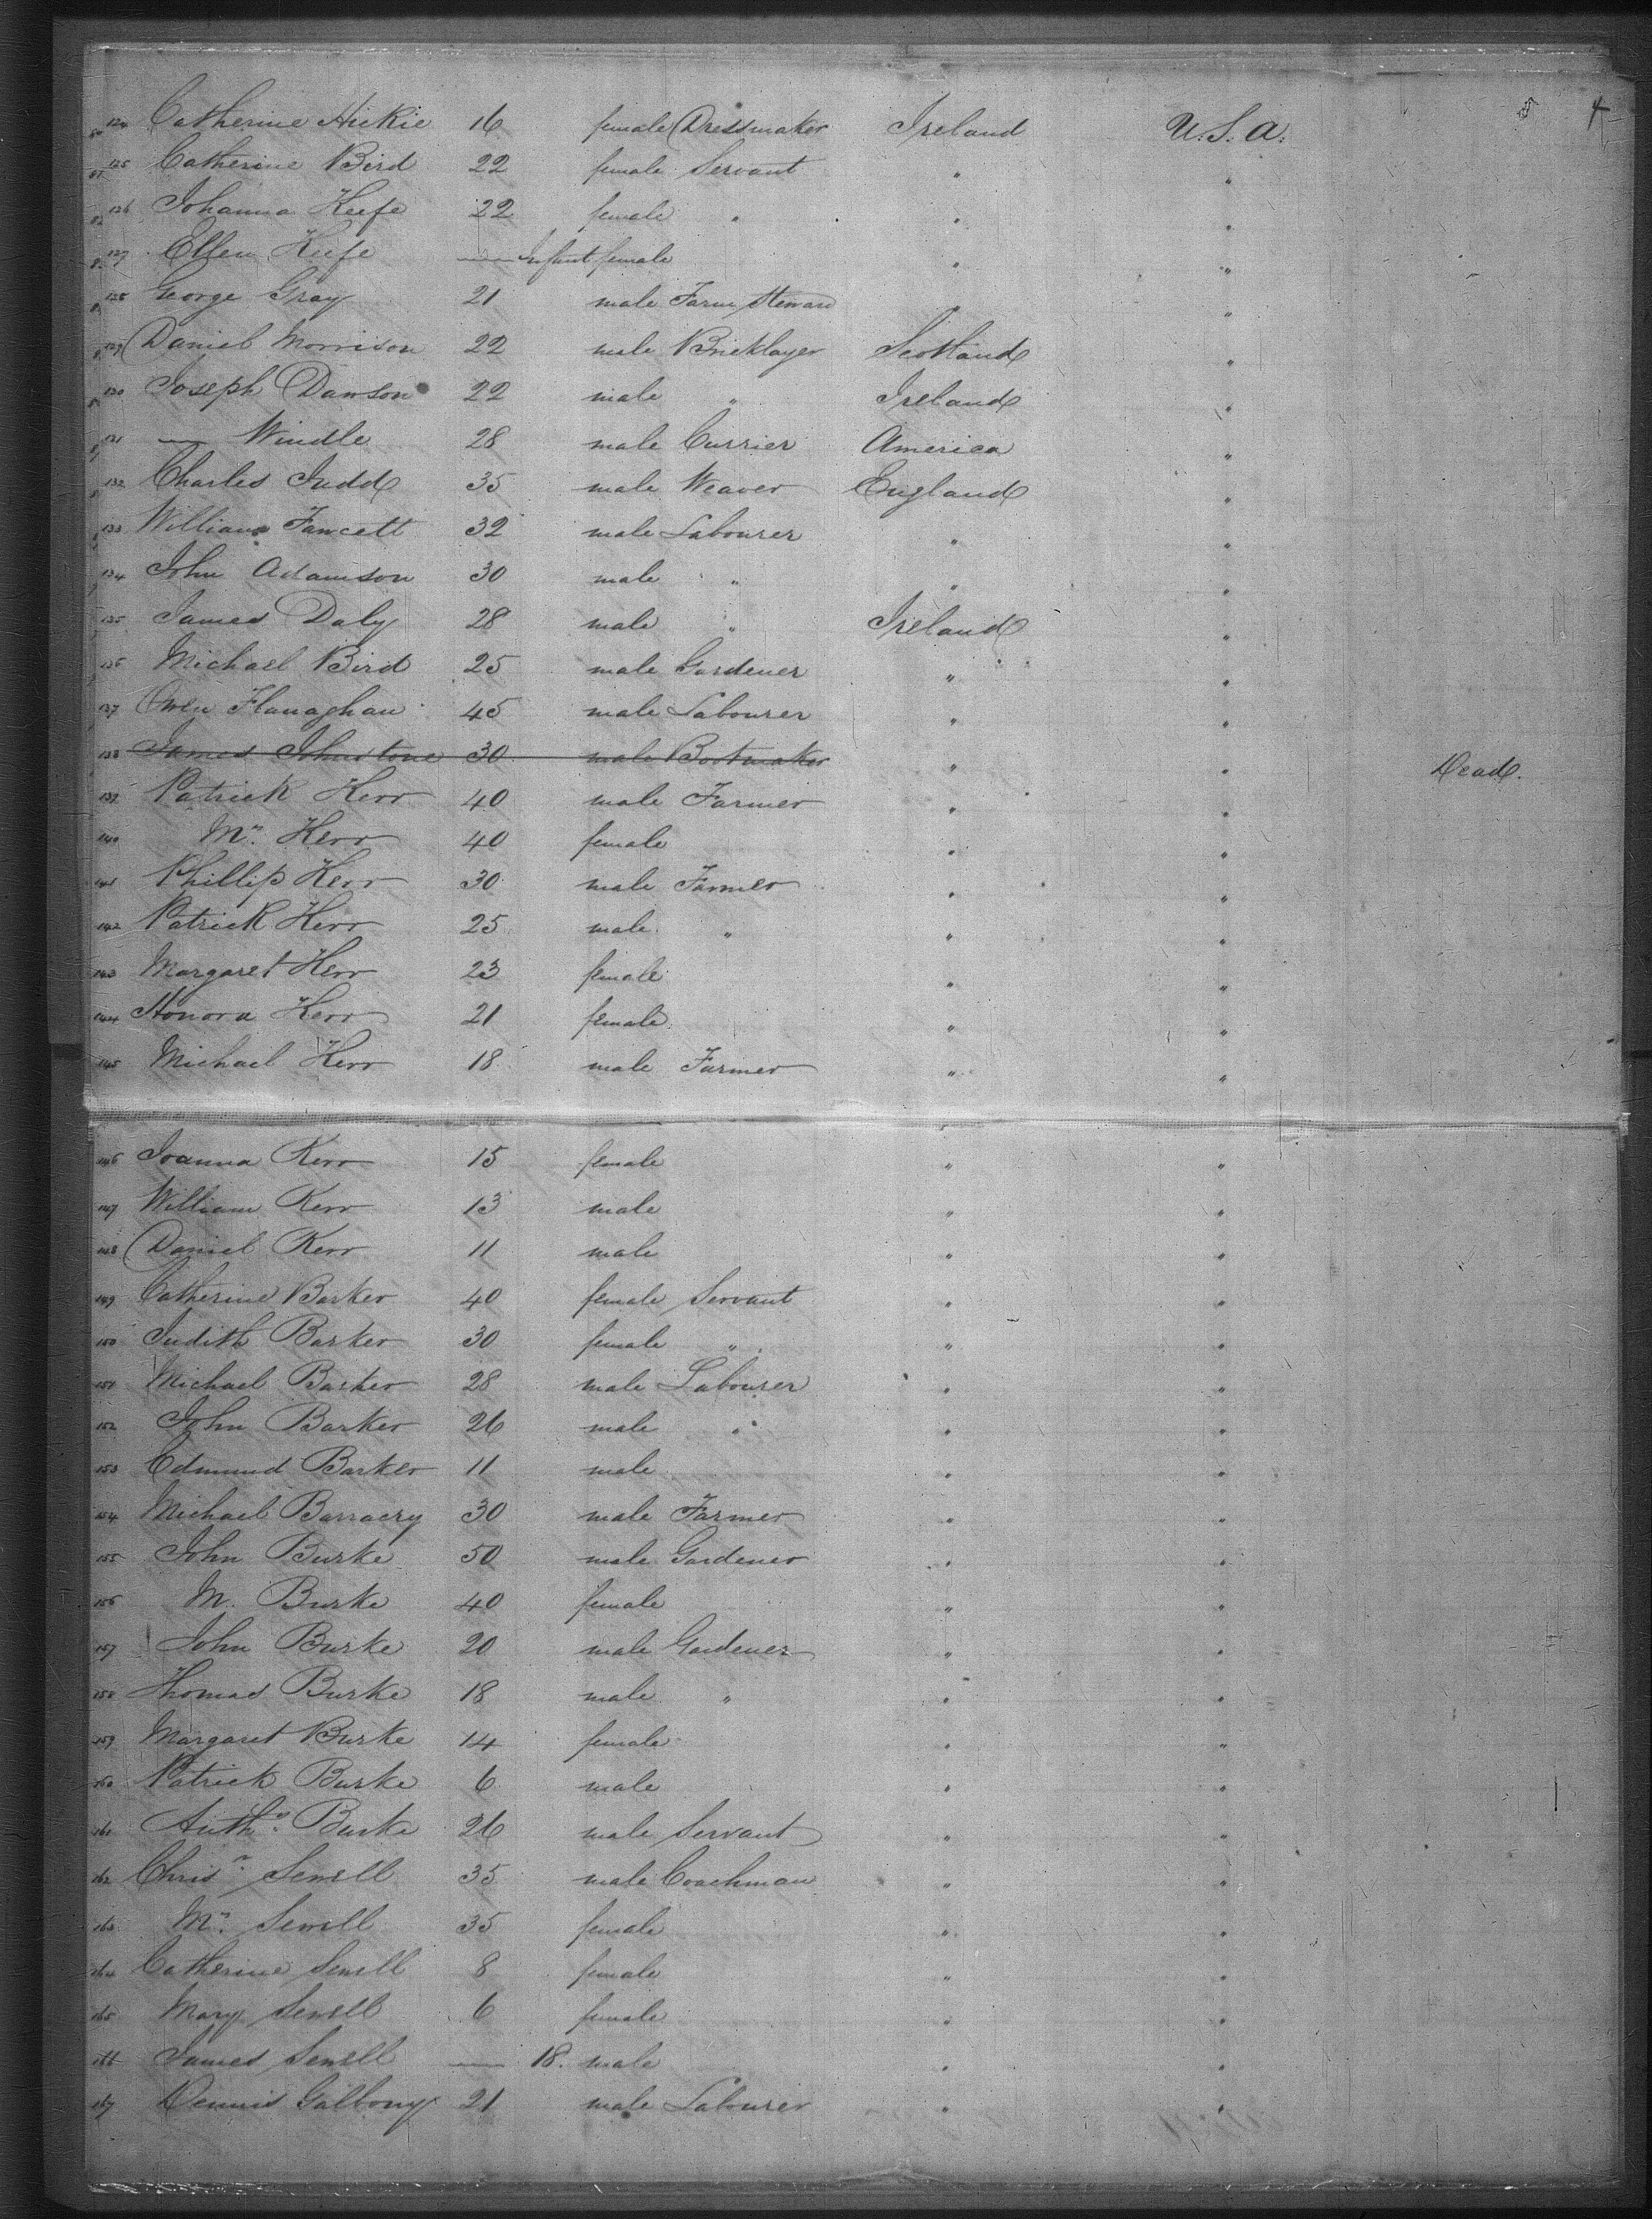 5 4
124 Catherine Hickie 16 female Dressmaker Ireland U.S.A.
125 Catherine Bird 22 female Servant " "
126 Johanna Keefe 22 female " " "
127 Ellen Keefe — Infant female " "
128 George Gray 21 male Farm Steward " "
129 Daniel Morrison 22 male Bricklayer Scotland "
130 Joseph Dawson 22 male " Ireland "
131 — Windle 28 male Currier America "
132 Charles Judd 35 male Weaver England "
133 William Fawcett 32 male Labourer " "
134 John Adamson 30 male " " "
135 James Daly 28 male " Ireland "
136 Michael Bird 25 male Gardener " "
137 Owen Flanaghan 45 male Labourer " "
138 James Johnstone 30 male Bootmaker " " Dead.
139 Patrick Kerr 40 male Farmer " "
140 Mrs. Kerr 40 female " "
141 Phillip Kerr 30 male Farmer " "
142 Patrick Kerr 25 male " " "
143 Margaret Kerr 23 female " "
144 Honora Kerr 21 female " "
145 Michael Kerr 18 male Farmer " "
146 Joanna Kerr 15 female " "
147 William Kerr 13 male " "
148 Daniel Kerr 11 male " "
149 Catherine Barker 40 female Servant " "
150 Judith Barker 30 female " " "
151 Michael Barker 28 male Labourer " "
152 John Barker 26 male " " "
153 Edmund Barker 11 male " "
154 Michael Barracry 30 male Farmer " "
155 John Burke 50 male Gardener " "
156 M. Burke 40 female " "
157 John Burke 20 male Gardener " "
158 Thomas Burke 18 male " " "
159 Margaret Burke 14 female " "
160 Patrick Burke 6 male " "
161 Anthy. Burke 26 male Servant " "
162 Chrisr. Sewell 35 male Coachman " "
163 Mrs. Sewell 35 female " "
164 Catherine Sewell 8 female " "
165 Mary Sewell 6 female " "
166 James Sewell — 18. male " "
167 Dennis Galbony 21 male Labourer " "